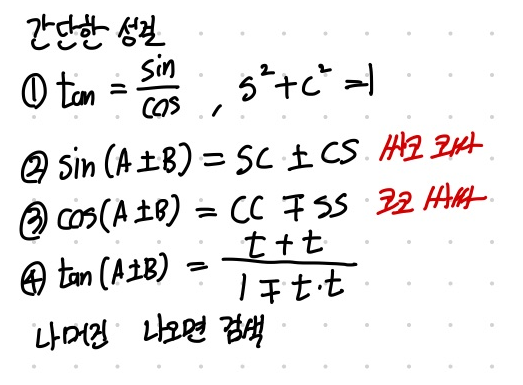 간단한 성질
① tan = sin/cos , s²+c²=1
② sin(A±B) = SC ± CS 싸코 코싸
③ cos(A±B) = CC ∓ SS 코코 싸싸
④ tan(A±B) = t+t / 1∓t·t
나머진 나오면 검색